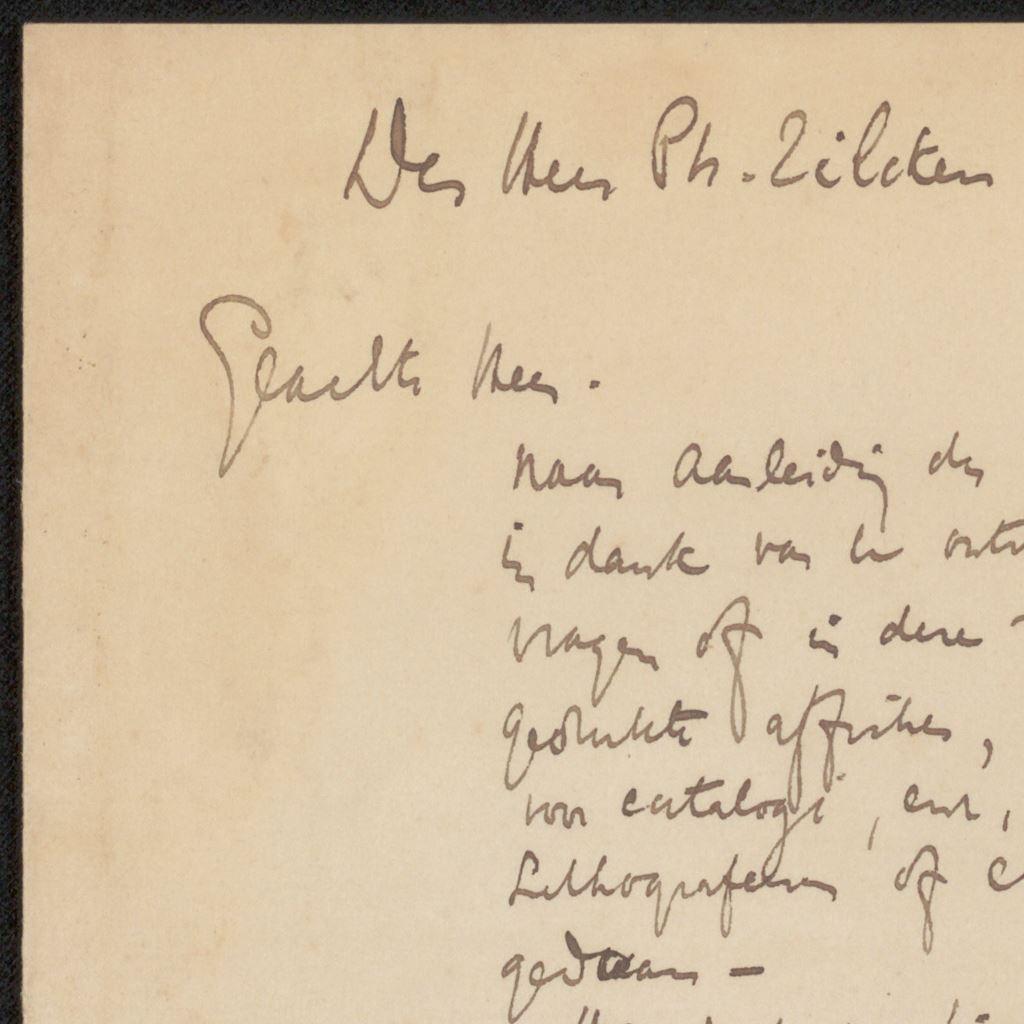 Den Heer Ph. Zilcken
Geachte Heer.
naar aanleiding der
in dank van U
vragen of in deze
gedrukte affiches,
voor catalogi, enz,
Lithografeeren of
gedaan –